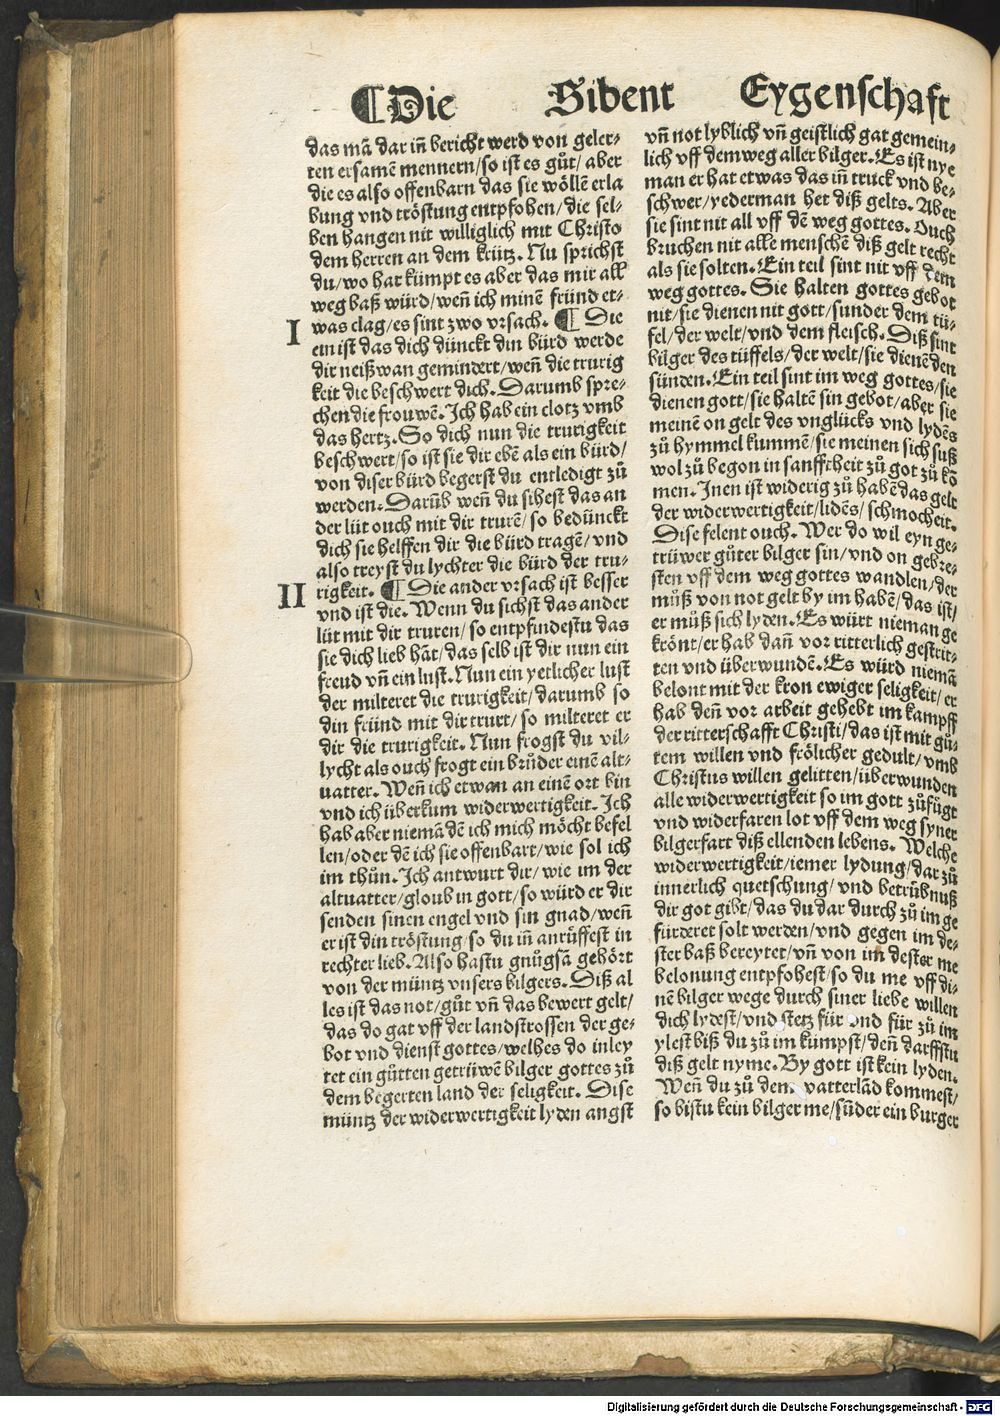 ¶Die Sibent Eygenschaft
das mã dar iñ bericht werd von geler-
ten ersamẽ mennern/so ist es gůt/ aber
die es also offenbarn das sie wöllẽ erla
bung vnd tröstung entpfohen/die sel-
ben hangen nit williglich mit Christo
dem herren an dem krütz. Nu sprichst
du/wo har kumpt es aber das mir all
weg baß würd/weñ ich minẽ fründ et-
I
was clag/es sint zwo vrsach. ¶ Die
ein ist das dich dünckt din bürd werde
dir neißwan gemindert/weñ die trurig
keit die beschwert dich. Darumb spre-
chen die frouwẽ. Ich hab ein clotz vmb
das hertz. So dich nun die trurigkeit
beschwert/so ist sie dir ebẽ als ein bürd/
von diser bürd begerst du entledigt zů
werden. Darũb weñ du sihest das an
der lüt ouch mit dir trurẽ/so bedünckt
dich sie helffen dir die bürd tragẽ/vnd
also treyst du lychter die bürd der tru-
II
rigkeit. ¶ Die ander vrsach ist besser
vnd ist die. Wenn du sichst das ander
lüt mit dir truren/so entpfindestu das
sie dich lieb hãt/das selb ist dir nun ein
freud vñ ein lust. Nun ein yetlicher lust
der milteret die trurigkeit/darumb so
din fründ mit dir trurt/so milteret er
dir die trurigkeit. Nun frogst du vil-
lycht als ouch frogt ein brůder einẽ alt-
uatter. Weñ ich etwan an einẽ ort bin
vnd ich überkum widerwertigkeit. Ich
hab aber niemã dẽ ich mich möcht befel
len/oder dẽ ich sie offenbart/wie sol ich
im thůn. Ich antwurt dir/wie im der
altuatter/gloub in gott/so würd er dir
senden sinen engel vnd sin gnad/weñ
er ist din tröstung/so du iñ anrüffest in
rechter lieb. Also hastu gnůgsã gehört
von der müntz vnsers bilgers. Diß al
les ist das not/gůt vñ das bewert gelt/
das do gat vff der landstrossen der ge-
bot vnd dienst gottes/welhes do inley
tet ein gůtten getrüwẽ bilger gottes zů
dem begerten land der seligkeit. Dise
müntz der widerwertigkeit lyden angst
vñ not lyblich vñ geistlich gat gemein-
lich vff dem weg aller bilger. Es ist nye
man er hat etwas das iñ truck vnd be-
schwer/yederman het diß gelts. Aber
sie sint nit all vff dẽ weg gottes. Ouch
bruchen nit alle menschẽ diß gelt recht
als sie solten. Ein teil sint nit vff dem
weg gottes. Sie halten gottes gebot
nit/sie dienen nit gott/sunder dem tü-
fel/der welt/vnd dem fleisch. Diß sint
bilger des tüffels/der welt/sie dienẽ den
sünden. Ein teil sint im weg gottes/sie
dienen gott/sie haltẽ sin gebot/aber sie
meinẽ on gelt des vnglücks vnd lydẽs
zů hymmel kummẽ/sie meinen sich suß
wol zů begon in sanfftheit zů got zů kõ
men. Inen ist widerig zů habẽ das gelt
der widerwertigkeit/lidẽs/schmocheit.
Dise felent ouch. Wer do wil eyn ge-
trüwer gůter bilger sin/vnd on gebre-
sten vff dem weg gottes wandlen/der
můß von not gelt by im habẽ/das ist/
er můß sich lyden. Es würt nieman ge
krönt/er hab dañ vor ritterlich gestrit-
ten vnd überwundẽ. Es würd niemã
belont mit der kron ewiger seligkeit/er
hab deñ vor arbeit gehebt im kampff
der ritterschafft Christi/das ist mit gů-
tem willen vnd frölicher gedult/vmb
Christus willen gelitten/überwunden
alle widerwertigkeit so im gott zůfügt
vnd widerfaren lot vff dem weg syner
bilgerfart diß ellenden lebens. Welche
widerwertigkeit/iemer lydung/dar zů
innerlich quetschung/vnd betrůbnuß
dir got gibt/das du dar durch zů im ge
fürderet solt werden/vnd gegen im de-
ster baß bereytet/vñ von im dester me
belonung entpfohest/so du me vff di-
nẽ bilger wege durch siner liebe willen
dich lydest/vnd stetz für vnd für zů im
ylest biß du zů im kumpst/deñ darffstu
diß gelt nyme. By gott ist kein lyden.
Weñ du zů dem vatterlãd kommest/
so bistu kein bilger me/sũder ein burger
Digitalisierung gefördert durch die Deutsche Forschungsgemeinschaft - DFG